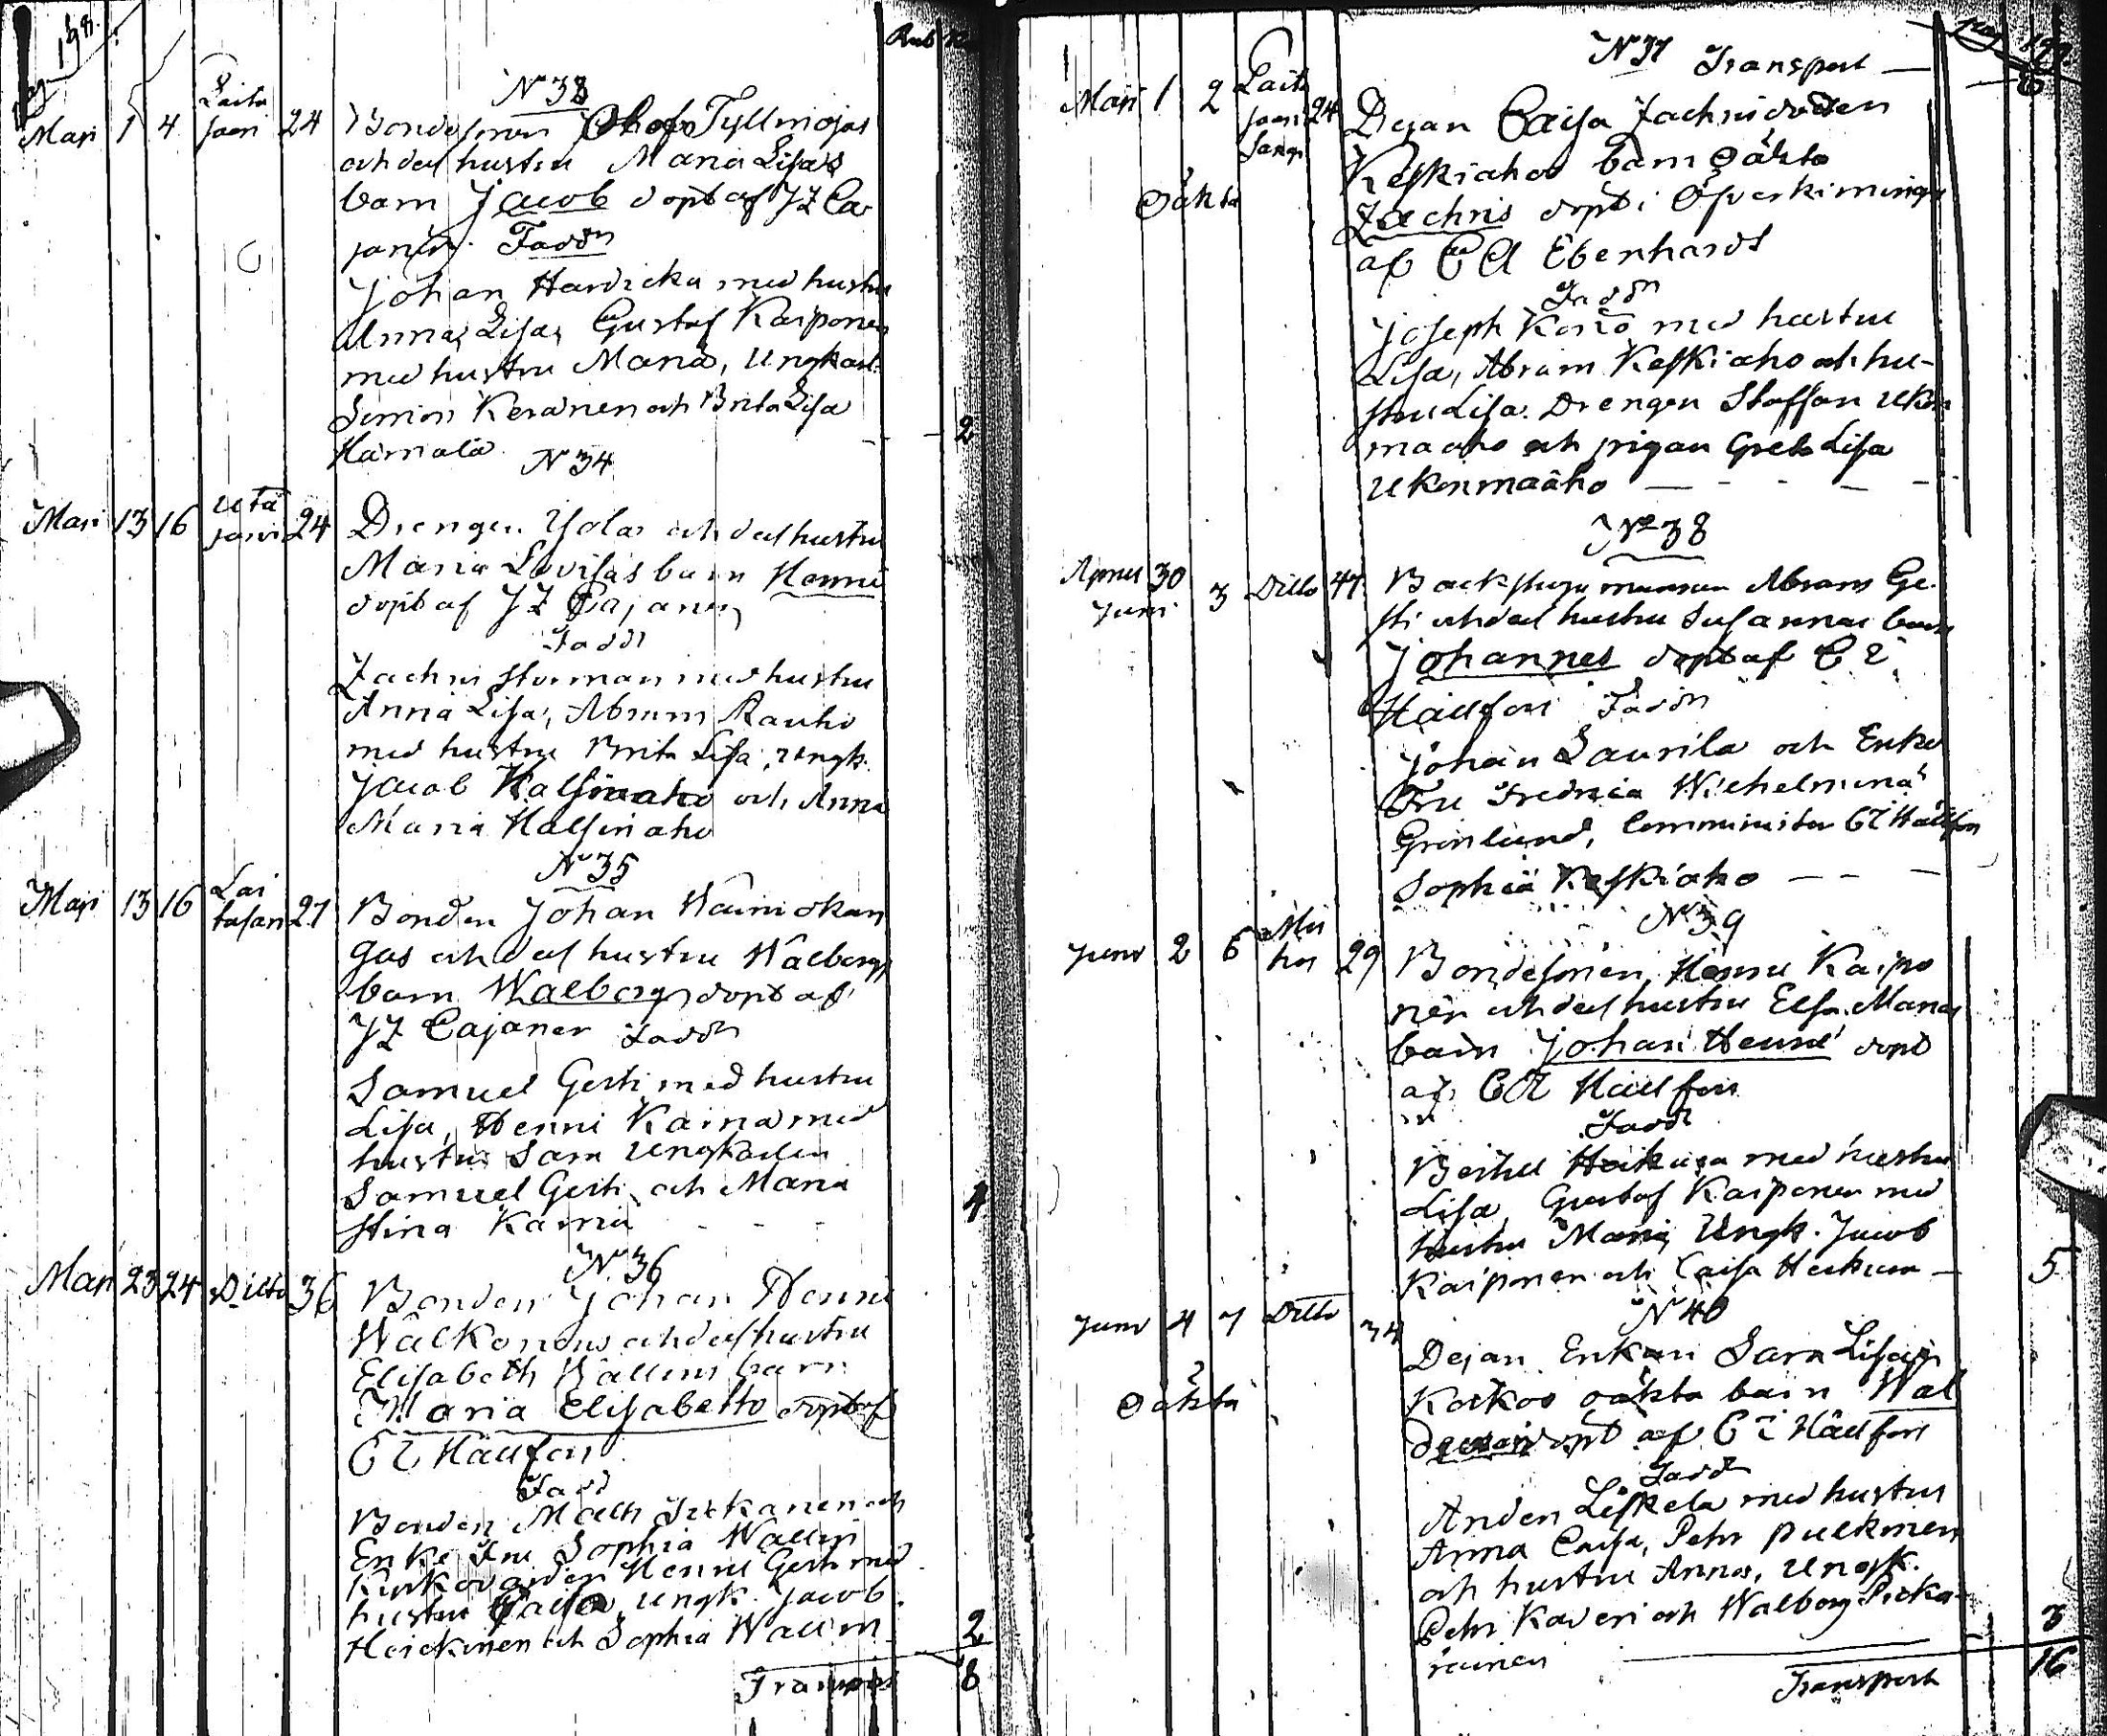 198.
Rub
N 33
Mari 1 4 Laita jaeri 24 Bondesonen Olof Tyllinojas
och des hustru Maria Lisas
barn Jacob döpt af JZ Ca
janus. Faddr
Johan Hardicka med hustru
Anna Lisa, Gustaf Kaiponen
med hustru Maria, Ungkarl.
Simon Keranen och Brita Lisa
Hamala - - 2
N 34
Mari 13 16 Utajärvi 24 Drengen Yolas och des hustru
Maria Lovisas barn Henric
döpt af JZ Cajanus
Fadd
Zachris Storman med hustru
Anna Lisa, Abram Rauhio
med hustru Brita Lisa, Ungk.
Jacob Halsinaho och Anna
Maria Halsinaho
N 35
Mari 13 16 Laitasari 27 Bonden Johan Wainiokan
gas och des hustru Walborgs
barn Walborg döpt af
JZ Cajaner Faddr
Samuel Gesti med hustru
Lisa, Henric Kaina med
hustru Sara Ungkarlen
Samuel Gesti och Maria
Stina Kaina - - - 4
N 36
Mari 23 24 Ditto 36 Bonden Johan Henric
Walkonens och des hustru
Elisabeth Wallins barn
Maria Elisabetha döpt af
C E Hällfors
Fadd
Bonden Matts Pickanen och
Enke Fru Sophia Wallin
Kyrkovärden Henric Gesti med
hustru Caisa, Ungk. Jacob
Heickinen och Sophia Wallin 2
Transport 8
pag 199
N 37 Transport — 8
Mari 1 2 Laita jaeri 24 Pigan Caisa Zachrisdotter
Keskiahos barn oäkta
oäkta Zachris döpt i Öfverkiminge
af C A Eberhardt
Faddr
Joseph Koskо med hustru
Lisa, Abram Keskiaho och hu-
stru Lisa. Drengen Staffan Ukon
maaho och pigan Greta Lisa
Ukonmaaho — - - — -
No 38
April 30 Juni 3 Ditto 47 Backstugumannen Abram Ge
sti och des hustru Susannas barn
Johannes döpt af C E
Hällfors Faddr
Johan Laurila och Enke
Fru Fredrica Wilhelmina
Grönlund, Comminister CE Hällfors
Sophia Keskiaho - - -
N 39
Juni 2 6 Muhos 29 Bondesonen Henric Kaipo
nen och des hustru Elsa Marias
barn Johan Henric döpt
af CE Hällfors
Fadd
Bertill Heikura med hustru
Lisa, Gustaf Kaiponen med
hustru Maria, Ungk. Jacob
Kaiponen och Caisa Heikura — 5
N 40
Juni 4 7 Ditto 34 Pigan Enkan Sara Lisas
oäkta Korkos oäkta barn Wal
döpt af C E Hällfors
Fadd
Anders Leskela med hustru
Anna Caisa, Pehr Pulkinen
och hustru Anna, Ungk.
Pehr Kaveri och Walborg Picka-
rainen 3
Transport 16